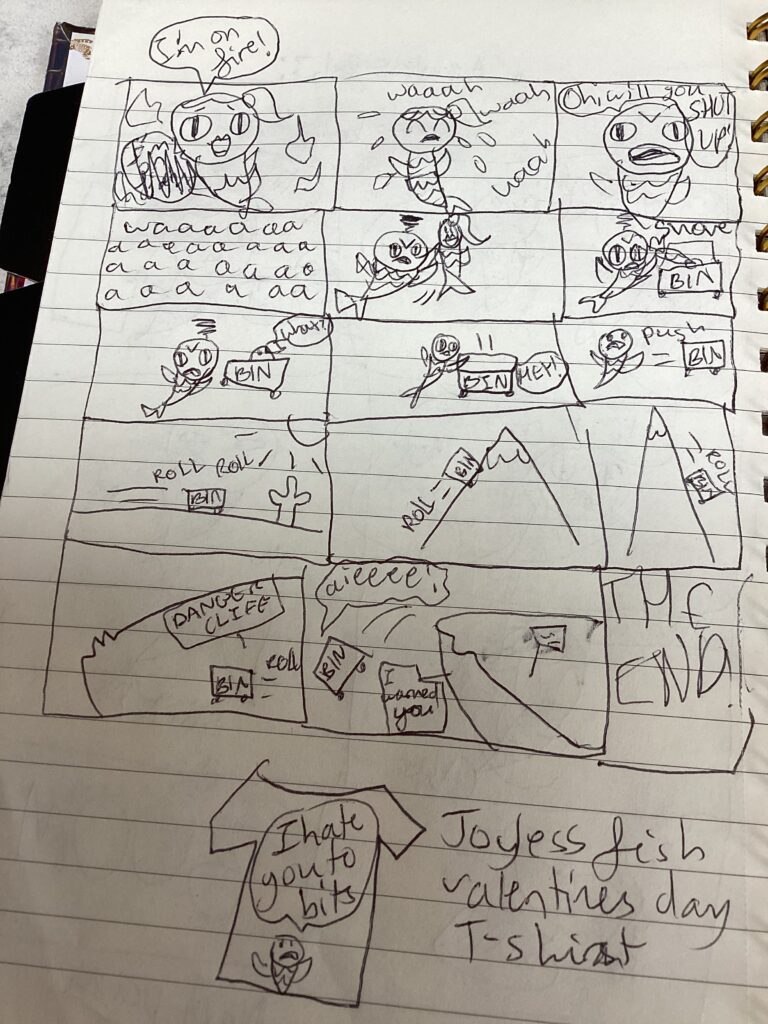 I'm on
fire!
waaah
waah
waah
Oh, will you
SHUT
UP!
waaaaaa
aaeaaaaa
aaaaaaao
aaaaaa
shove
BIN
Wha?
BIN
BIN
HEY!
push
BIN
ROLL ROLL
BIN
ROLL
BIN
ROLL
BIN
DANGER
CLIFF
BIN
ROLL
aieeeee!
BIN
I
warned
you
THE
END!
I hate
you to
bits
Joyless fish
valentines day
T-shirt